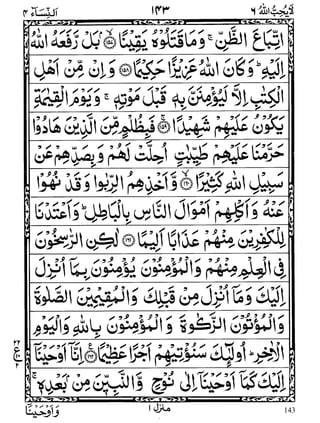 لَا يُحِبُّ اللّٰهُ ٦ ١٤٣ اَلنِّسَآء ٤
اِتِّبَاعَ الظَّنِّ ۚ وَمَا قَتَلُوْهُ يَقِيْنًۢا ﴿١٥٧﴾ بَلْ رَّفَعَهُ اللّٰهُ
اِلَيْهِ ؕ وَكَانَ اللّٰهُ عَزِيْزًا حَكِيْمًا ﴿١٥٨﴾ وَاِنْ مِّنْ اَهْلِ
الْكِتٰبِ اِلَّا لَيُؤْمِنَنَّ بِهٖ قَبْلَ مَوْتِهٖ ۚ وَيَوْمَ الْقِيٰمَةِ
يَكُوْنُ عَلَيْهِمْ شَهِيْدًا ﴿١٥٩﴾ فَبِظُلْمٍ مِّنَ الَّذِيْنَ هَادُوْا
حَرَّمْنَا عَلَيْهِمْ طَيِّبٰتٍ اُحِلَّتْ لَهُمْ وَبِصَدِّهِمْ عَنْ
سَبِيْلِ اللّٰهِ كَثِيْرًا ﴿١٦٠﴾ وَّاَخْذِهِمُ الرِّبٰوا وَقَدْ نُهُوْا
عَنْهُ وَاَكْلِهِمْ اَمْوَالَ النَّاسِ بِالْبَاطِلِ ؕ وَاَعْتَدْنَا
لِلْكٰفِرِيْنَ مِنْهُمْ عَذَابًا اَلِيْمًا ﴿١٦١﴾ لٰكِنِ الرّٰسِخُوْنَ
فِى الْعِلْمِ مِنْهُمْ وَالْمُؤْمِنُوْنَ يُؤْمِنُوْنَ بِمَاۤ اُنْزِلَ
اِلَيْكَ وَمَاۤ اُنْزِلَ مِنْ قَبْلِكَ وَالْمُقِيْمِيْنَ الصَّلٰوةَ
وَالْمُؤْتُوْنَ الزَّكٰوةَ وَالْمُؤْمِنُوْنَ بِاللّٰهِ وَالْيَوْمِ
الْاٰخِرِ ؕ اُولٰٓئِكَ سَنُؤْتِيْهِمْ اَجْرًا عَظِيْمًا ﴿١٦٢﴾ اِنَّاۤ اَوْحَيْنَاۤ
اِلَيْكَ كَمَاۤ اَوْحَيْنَاۤ اِلٰى نُوْحٍ وَّالنَّبِيّٖنَ مِنْۢ بَعْدِهٖ ۚ
وَاَوْحَيْنَاۤ منزل ١ 143